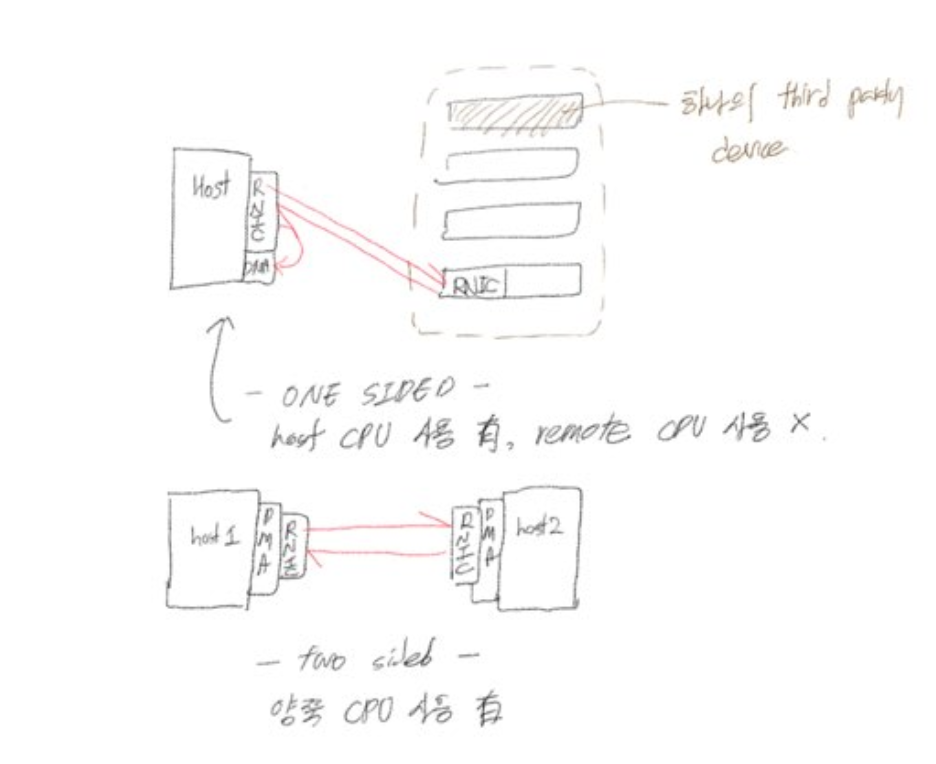 하나의 third party
device
Host
RNIC
DMA
RNIC
- ONE SIDED -
host CPU 사용 有, remote CPU 사용 X.
host1
DMA
RNIC
RNIC
DMA
host2
- two sided -
양쪽 CPU 사용 有